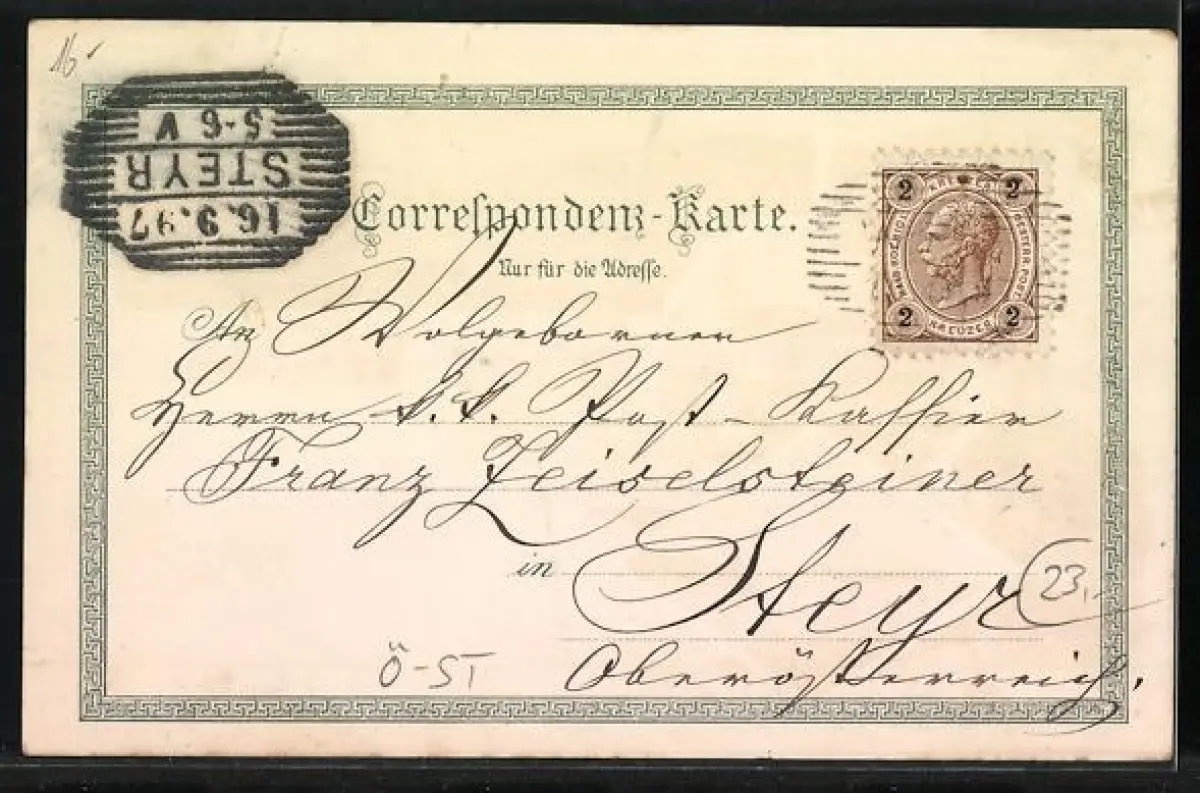 16.-
16.9.97
STEYR
5-6 V
Correspondenz-Karte.
Nur für die Adresse.
2 2
2 KREUZER 2
An Wolgebornen
Herrn k. k. Post-Kassier
Franz Zeiselsteiner
in Steyr
23,-
Oberösterreich.
Ö-ST